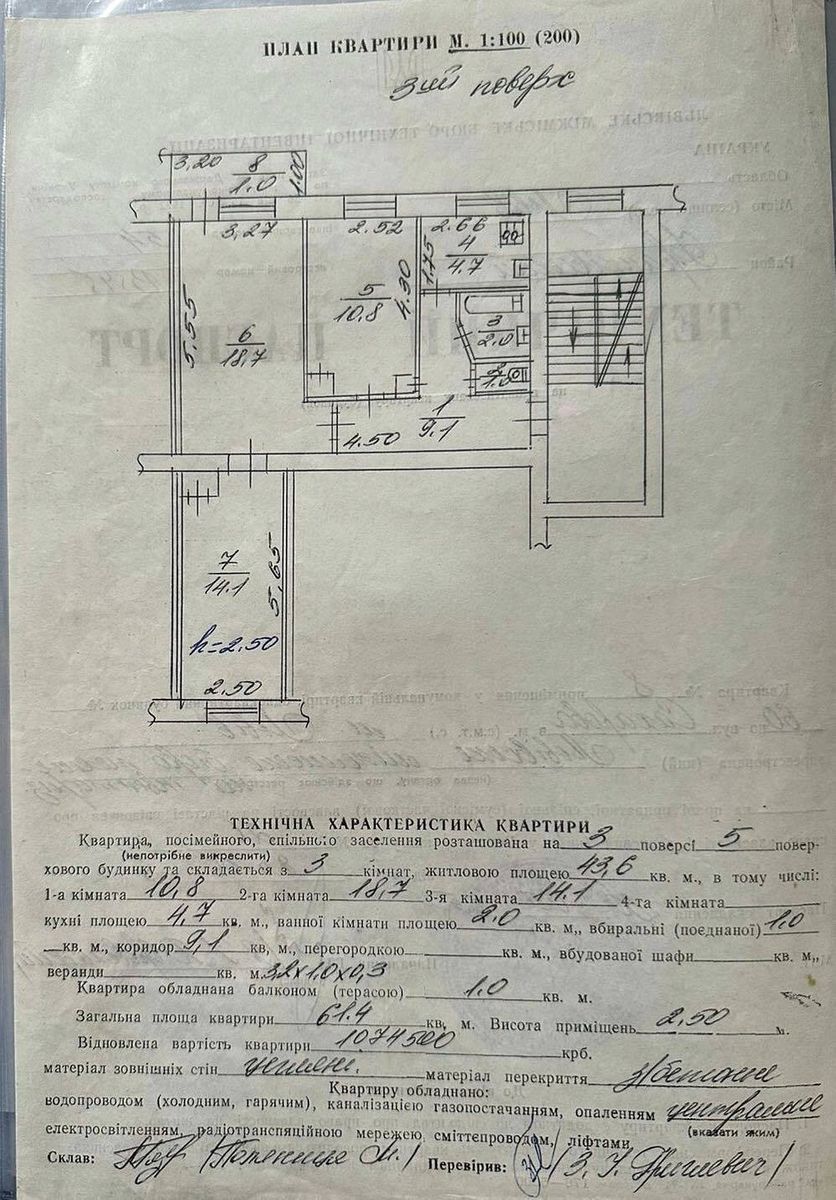 ПЛАН КВАРТИРИ М. 1:100 (200)
3ий поверх
3,20 8/1.0 1.00
3,27 2.52 2.66
5.55 6/18,7 5/10,8 4.30 1.75 4/4.7
3/2.0
2/1.0
4.50 1/9.1
7/14.1 5,65
h=2.50
2.50
ТЕХНІЧНА ХАРАКТЕРИСТИКА КВАРТИРИ
Квартира, посімейного, спільного заселення розташована на 3 поверсі 5 повер-
(непотрібне викреслити)
хового будинку та складається з 3 кімнат, житловою площею 43,6 кв. м., в тому числі:
1-а кімната 10,8 2-га кімната 18,7 3-я кімната 14.1 4-та кімната
кухні площею 4,7 кв. м., ванної кімнати площею 2.0 кв. м,, вбиральні (поєднаної) 1.0
кв. м., коридор 9,1 кв, м., перегородкою кв. м., вбудованої шафи кв. м,,
веранди кв. м. 3,2х1.0х0,3
Квартира обладнана балконом (терасою) 1.0 кв. м.
Загальна площа квартири 61.4 кв, м. Висота приміщень 2.50 м.
Відновлена вартість квартири 1074500 крб.
матеріал зовнішніх стін цегляні. матеріал перекриття з/бетонне
Квартиру обладнано:
водопроводом (холодним, гарячим), каналізацією газопостачанням, опаленням центральне
(вказати яким)
електросвітленням, радіотранспяційною мережею сміттепроводом, ліфтами.
Склав: Перевірив: